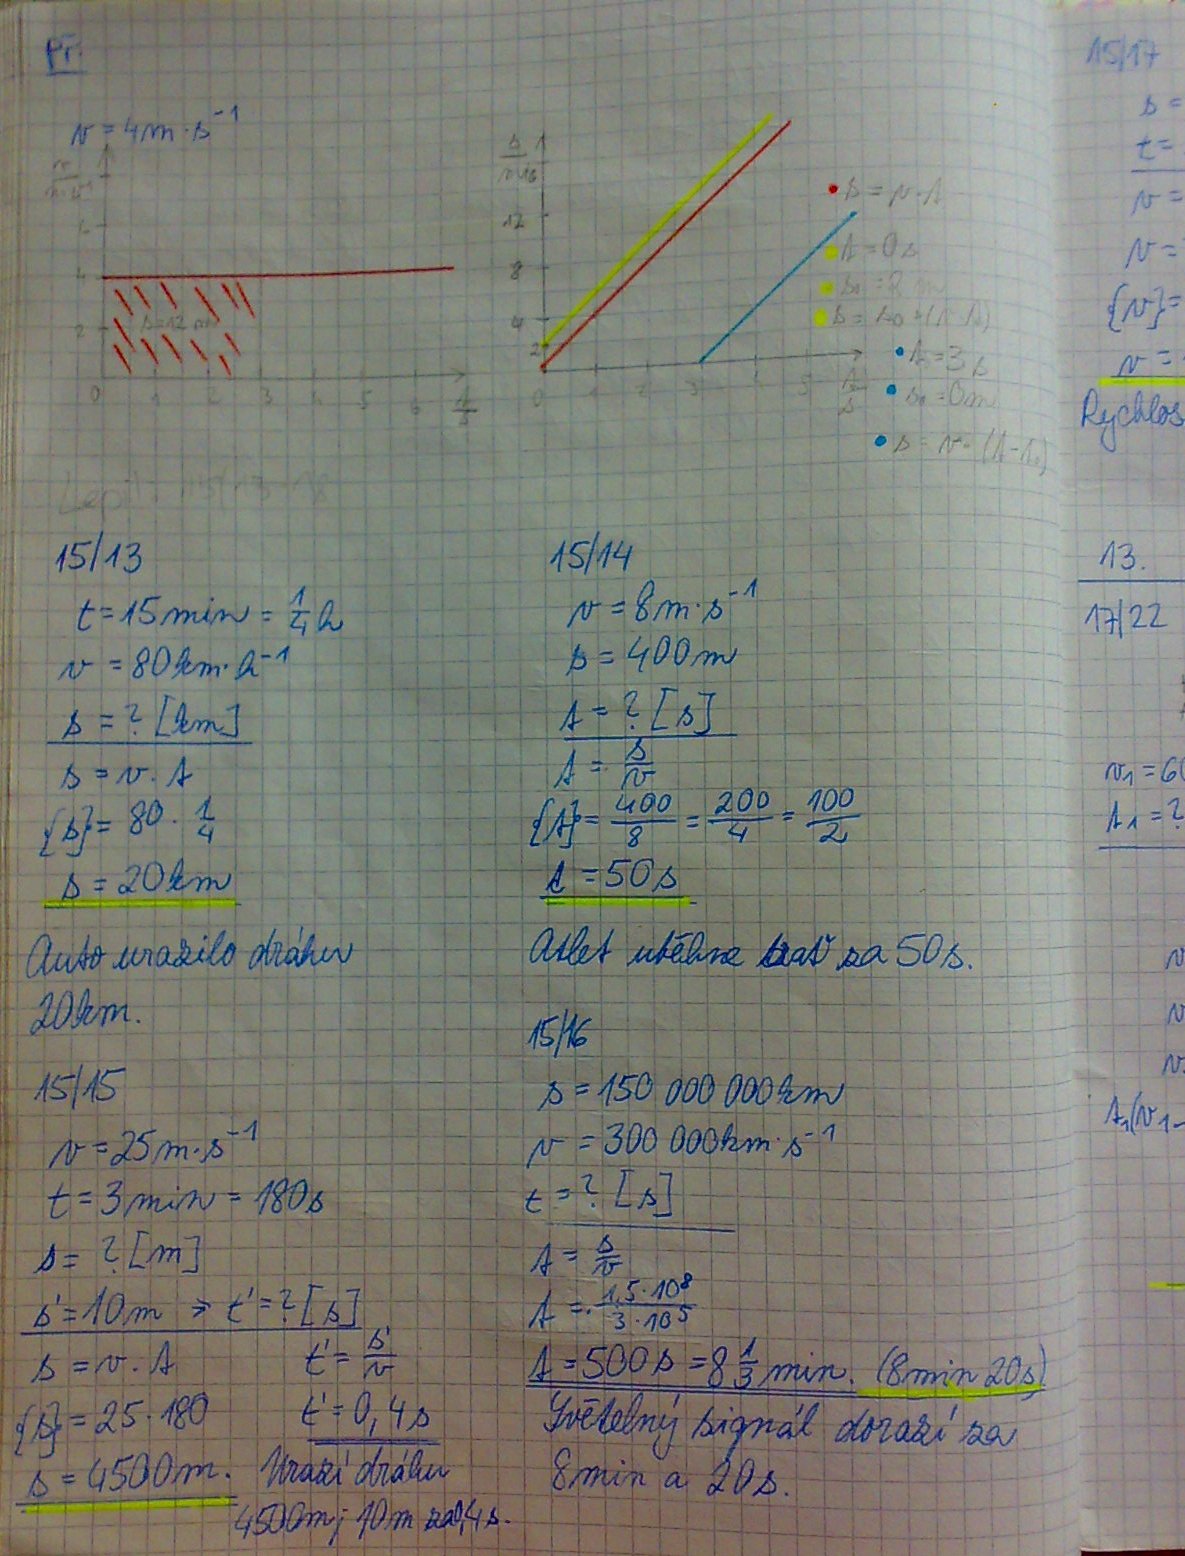 Př.
v = 4 m·s⁻¹
v
m·s⁻¹
6
4
2
s=12 m
0 1 2 3 4 5 6 t
s
s
m
12
8
4
2
0 1 2 3 4 5
t
s
s = v·t
t = 0 s
s₀ = 2 m
s = s₀ + (v·t)
t₀ = 3 s
s₀ = 0 m
s = v·(t-t₀)
15/13
t = 15 min = 1/4 h
v = 80 km·h⁻¹
s = ? [km]
s = v·t
{s} = 80 · 1/4
s = 20 km
Auto urazilo dráhu
20 km.
15/14
v = 8 m·s⁻¹
s = 400 m
t = ? [s]
t = s/v
{t} = 400/8 = 200/4 = 100/2
t = 50 s
Atlet uběhne trať za 50 s.
15/15
v = 25 m·s⁻¹
t = 3 min = 180 s
s = ? [m]
s' = 10 m ⇒ t' = ? [s]
s = v·t t' = s'/v
{s} = 25·180 t' = 0,4 s
s = 4500 m. Urazí dráhu
4500 m; 10 m za 0,4 s.
15/16
s = 150 000 000 km
v = 300 000 km·s⁻¹
t = ? [s]
t = s/v
t = 1,5·10⁸/3·10⁵
t = 500 s = 8 1/3 min. (8 min 20 s)
Světelný signál dorazí za
8 min a 20 s.
15/17
s =
t =
v =
v =
{v} =
v =
Rychlos
13.
17/22
v₁ = 60
t₁ = ?
v
v
v
t₁(v₁-